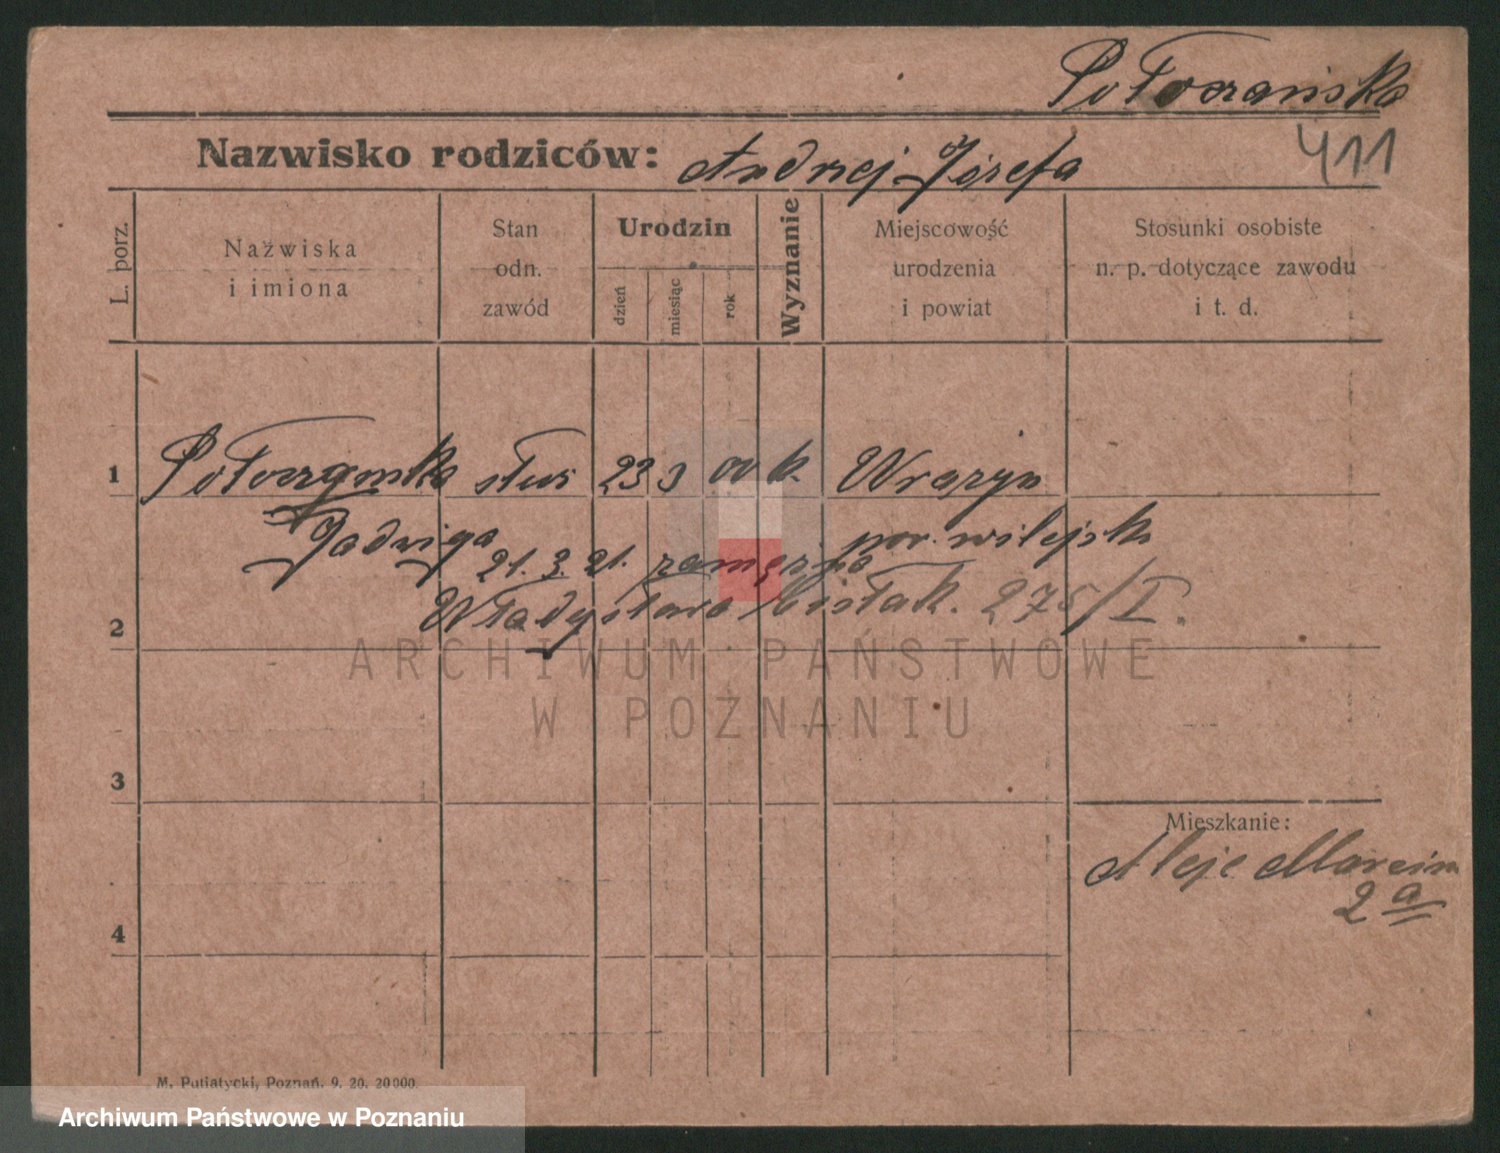 Potoczańska
411
Nazwisko rodziców: Andrzej Józefa
L. porz.
Nazwiska i imiona
Stan odn. zawód
Urodzin
dzień
miesiąc
rok
Wyznanie
Miejscowość urodzenia i powiat
Stosunki osobiste n. p. dotyczące zawodu i t. d.
1 służ 23 3 00 k.
Jadwiga pow. wilejsk
21. 3. 21. zamężna
2 Władysław 275/I.
ARCHIWUM PAŃSTWOWE
W POZNANIU
3
Mieszkanie:
Aleje Marcin
2a
4
M. Putiatycki, Poznań. 9. 20. 20000.
Archiwum Państwowe w Poznaniu